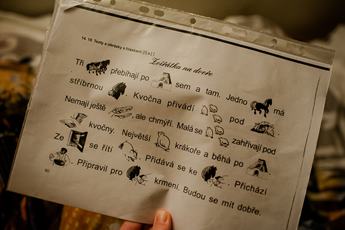 14. 10. Texty s obrázky s hláskami [ř a ž]
Zvířátka na dvoře
Tři přebíhají po sem a tam. Jedno má
stříbrnou . Kvočna přivádí pod .
Nemají ještě , ale chmýří. Malá se zahřívají pod
kvočny. Největší krákoře a běhá po .
Ze se řítí . Přidává se ke . Přichází
. Připravil pro krmení. Budou se mít dobře.
90